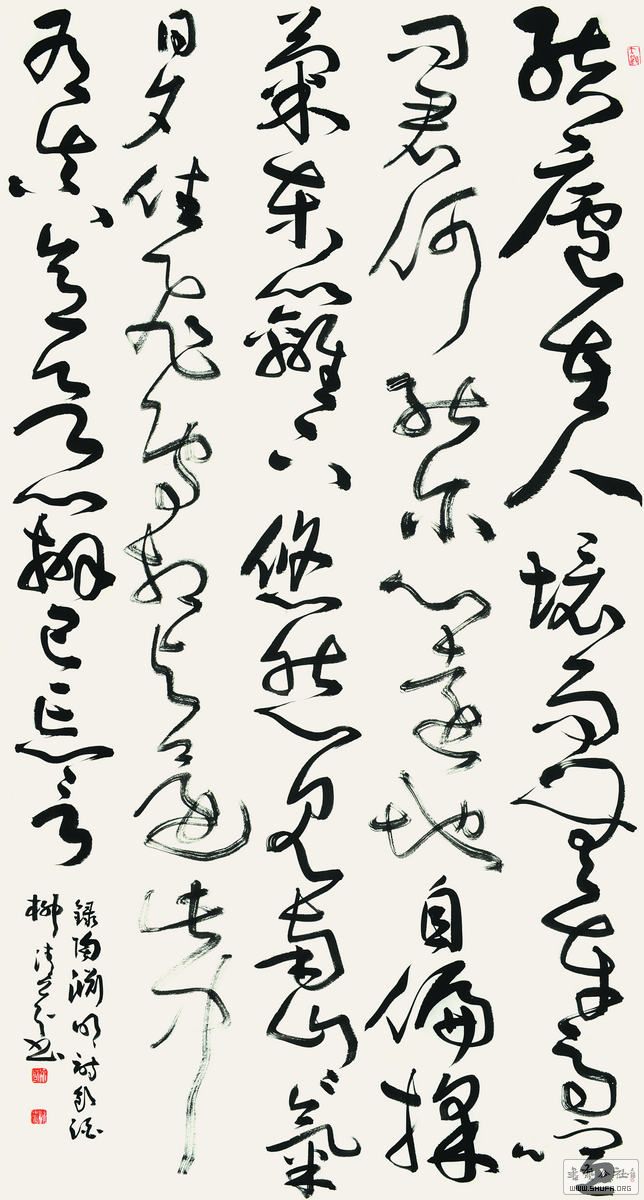 結廬在人境而無車馬喧
問君何能尔心遠地自偏採
菊東籬下悠然見南山〻氣
日夕佳飛鳥相與還此中
有真意欲辨已忘言
錄陶淵明詩飲酒
柳清書
書法公社
WWW.SHUFA.ORG